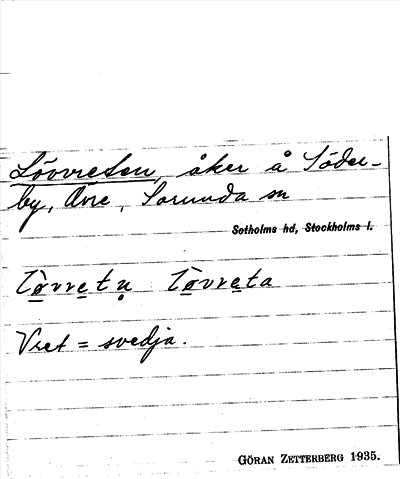 Lövvreten, åker å Söder-
by, Övre, Sorunda sn
Sotholms hd, Stockholms l.
Lövvretn Lövvreta
Vret = svedja.
GÖRAN ZETTERBERG 1935.